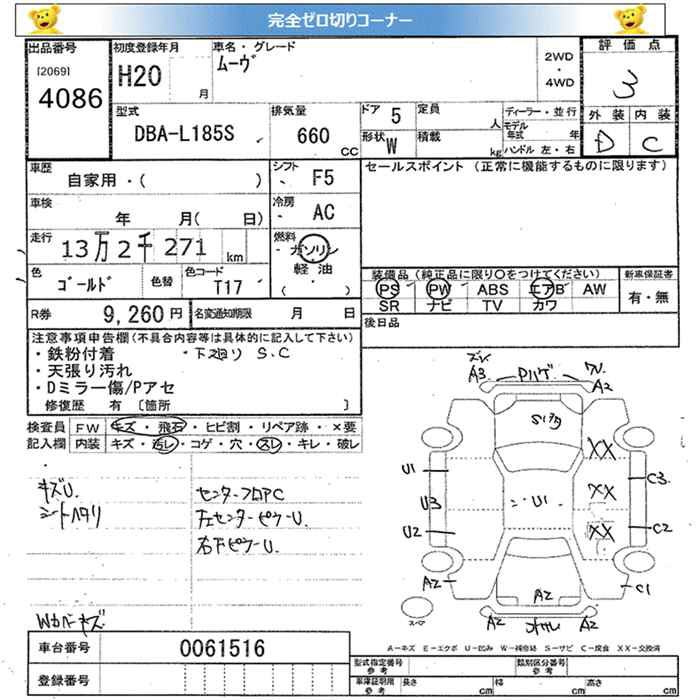 完全ゼロ切りコーナー
出品番号
[2069]
4086
初度登録年月
H20
月
車名・グレード
ムーヴ
2WD
・
4WD
評価点
3
外装 内装
D C
型式
DBA-L185S
排気量
660
CC
ドア 5
形状 W
定員
人
積載
kg
ディーラー・並行
モデル年式 年
ハンドル 左・右
車歴
自家用・( )
シフト
F5
セールスポイント (正常に機能するものに限ります)
車検
年 月( 日)
冷房
AC
走行
13万2千271
km
燃料
・ガソリン
軽油
( ・ )
色
ゴールド
色替
色コード
T17
装備品(純正品に限り〇をつけてください)
PS PW ABS エアB AW
SR ナビ TV カワ
新車保証書
有・無
R券
9,260 円
名変通知期限
月 日
後日品
注意事項申告欄(不具合内容等は具体的に記入して下さい)
・鉄粉付着
・下廻り S.C
・天張り汚れ
・Dミラー傷/Pアセ
修復歴 有 [箇所 ]
検査員 FW キズ・飛石・ヒビ割・リペア跡・×要
記入欄 内装 キズ・汚レ・コゲ・穴・スレ・キレ・破レ
キズU.
シートハタリ
センターフロアC
左センターピラーU.
右下ピラーU.
Wカバーキズ
A3
Pハゲ
A2
XX
U1
C3
XX
U1
U3
U2
XX
C2
A2
A2
C1
スペア
A2
A2
A-キズ E-エクボ U-凹み W-補修跡 S-サビ C-腐食 XX-交換済
車台番号
0061516
登録番号
型式指定番号
参考
類別区分番号
参考
車庫証明用
参考
長さ
cm
幅
cm
高さ
cm